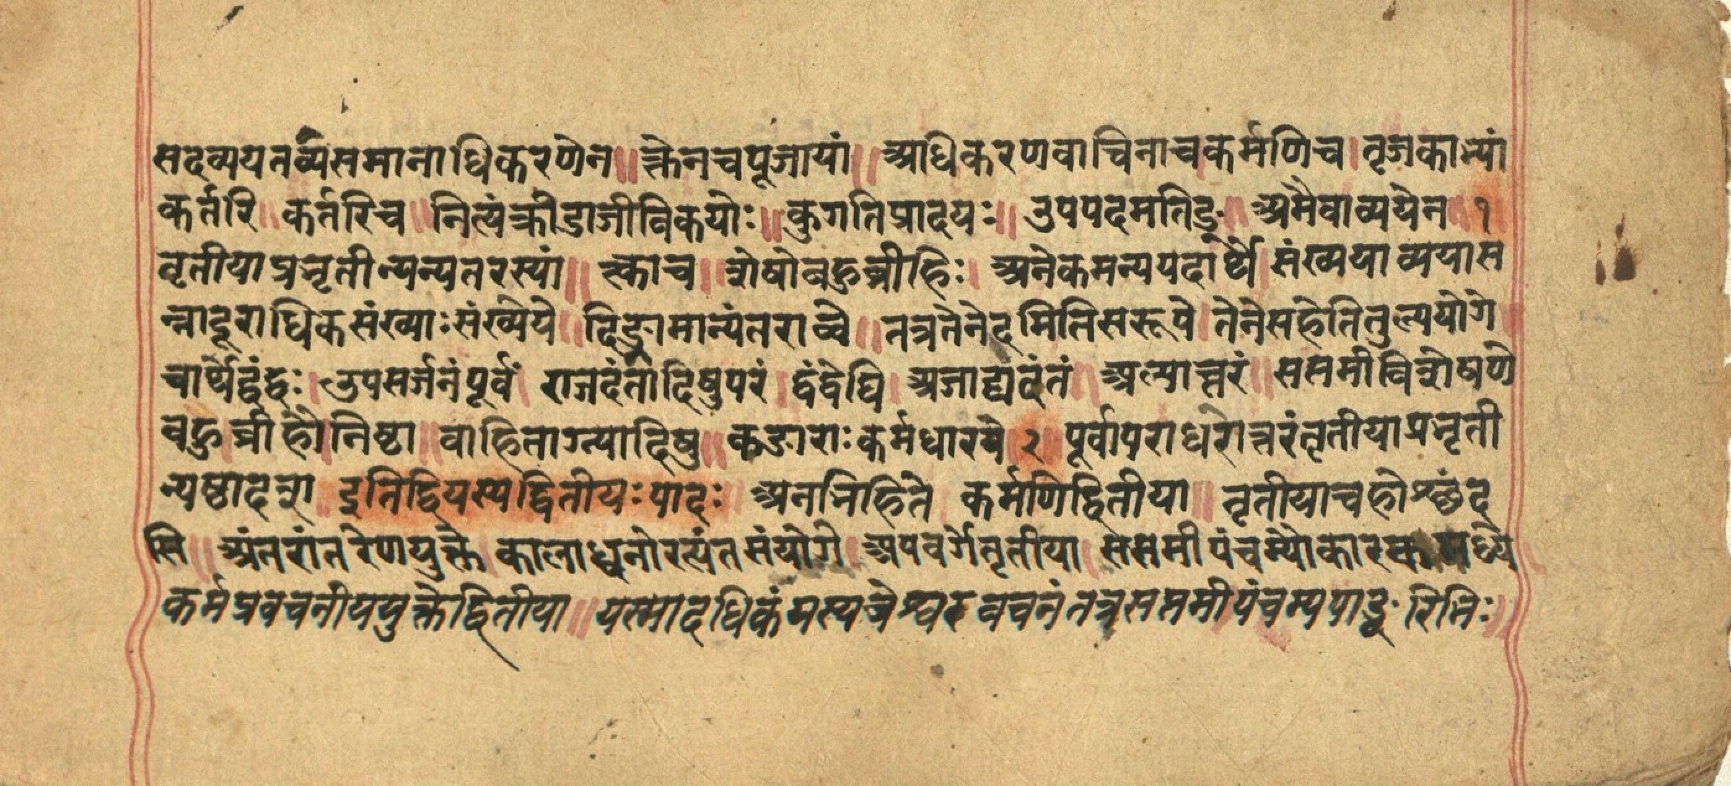 सदव्ययतव्यसमानाधिकरणेन ॥ क्तेनचपूजायां ॥ अधिकरणवाचिनाचकर्मणिच । तृजकाभ्यां
कर्तरि ॥ कर्तरिच ॥ नित्यंक्रीडाजीविकयोः ॥ कुगतिप्रादयः ॥ उपपदमतिङ् ॥ अमैवाव्ययेन १
तृतीयाप्रभृतीन्यन्यतरस्यां ॥ त्काच ॥ शेषोबहुव्रीहिः । अनेकमन्यपदार्थे । संख्ययाव्ययास
न्नादूराधिकसंख्याःसंख्येये ॥ दिङ्नामान्यंतराले ॥ तत्रतेनेदमितिसरूपे । तेनसहेतितुल्ययोगे
चार्थेद्वंद्वः । उपसर्जनंपूर्वं । राजदंतादिषुपरं । द्वंद्वेघि । अजाद्यदंतं । अल्पाच्तरं ॥ सप्तमीविशेषणे
बहुव्रीहौ । निष्ठा ॥ वाहिताग्न्यादिषु ॥ कडाराःकर्मधारये २ पूर्वापराधरोत्तरंतृतीयाप्रभृती
न्यष्ठादश ॥ इतिद्वियस्यद्वितीयःपादः अनभिहिते कर्मणिद्वितीया ॥ तृतीयाचहोश्छंद
सि ॥ अंतरांतरेणयुक्ते कालाध्वनोरत्यंतसंयोगे अपवर्गेतृतीया सप्तमीपंचम्यौकारकमध्ये
कर्मप्रवचनीययुक्तेद्वितीया ॥ यस्मादधिकंयस्यचेश्वरवचनंतत्रसप्तमी पंचम्यपाङ्परिभिः ॥